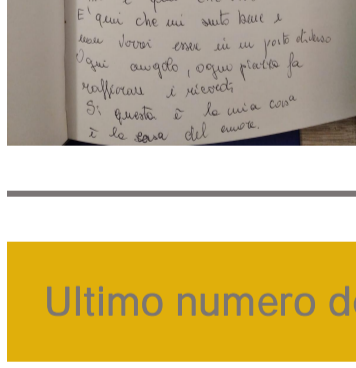 E' qui che mi sento bene e
non vorrei essere in un posto diverso
Ogni angolo, ogni pietra fa
rafforzare i ricordi
Sì questa è la mia casa
è la casa del cuore.
Ultimo numero d